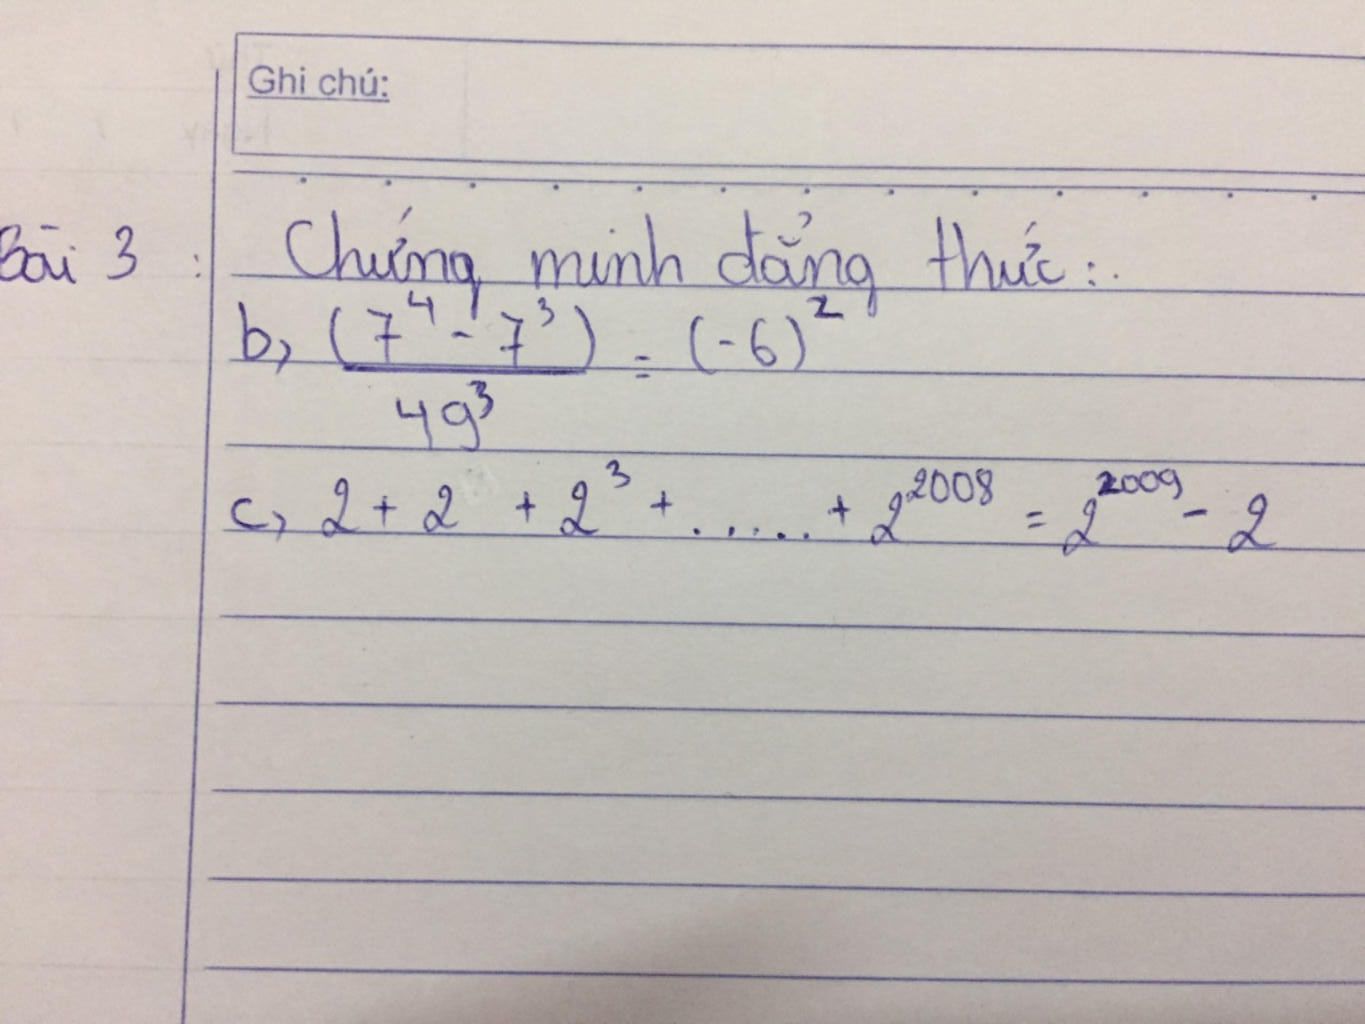 Ghi chú:
Bài 3 : Chứng minh đẳng thức :.
b, (7⁴ - 7³) / 49³ = (-6)²
c, 2 + 2 + 2³ + ...... + 2²⁰⁰⁸ = 2²⁰⁰⁹ - 2